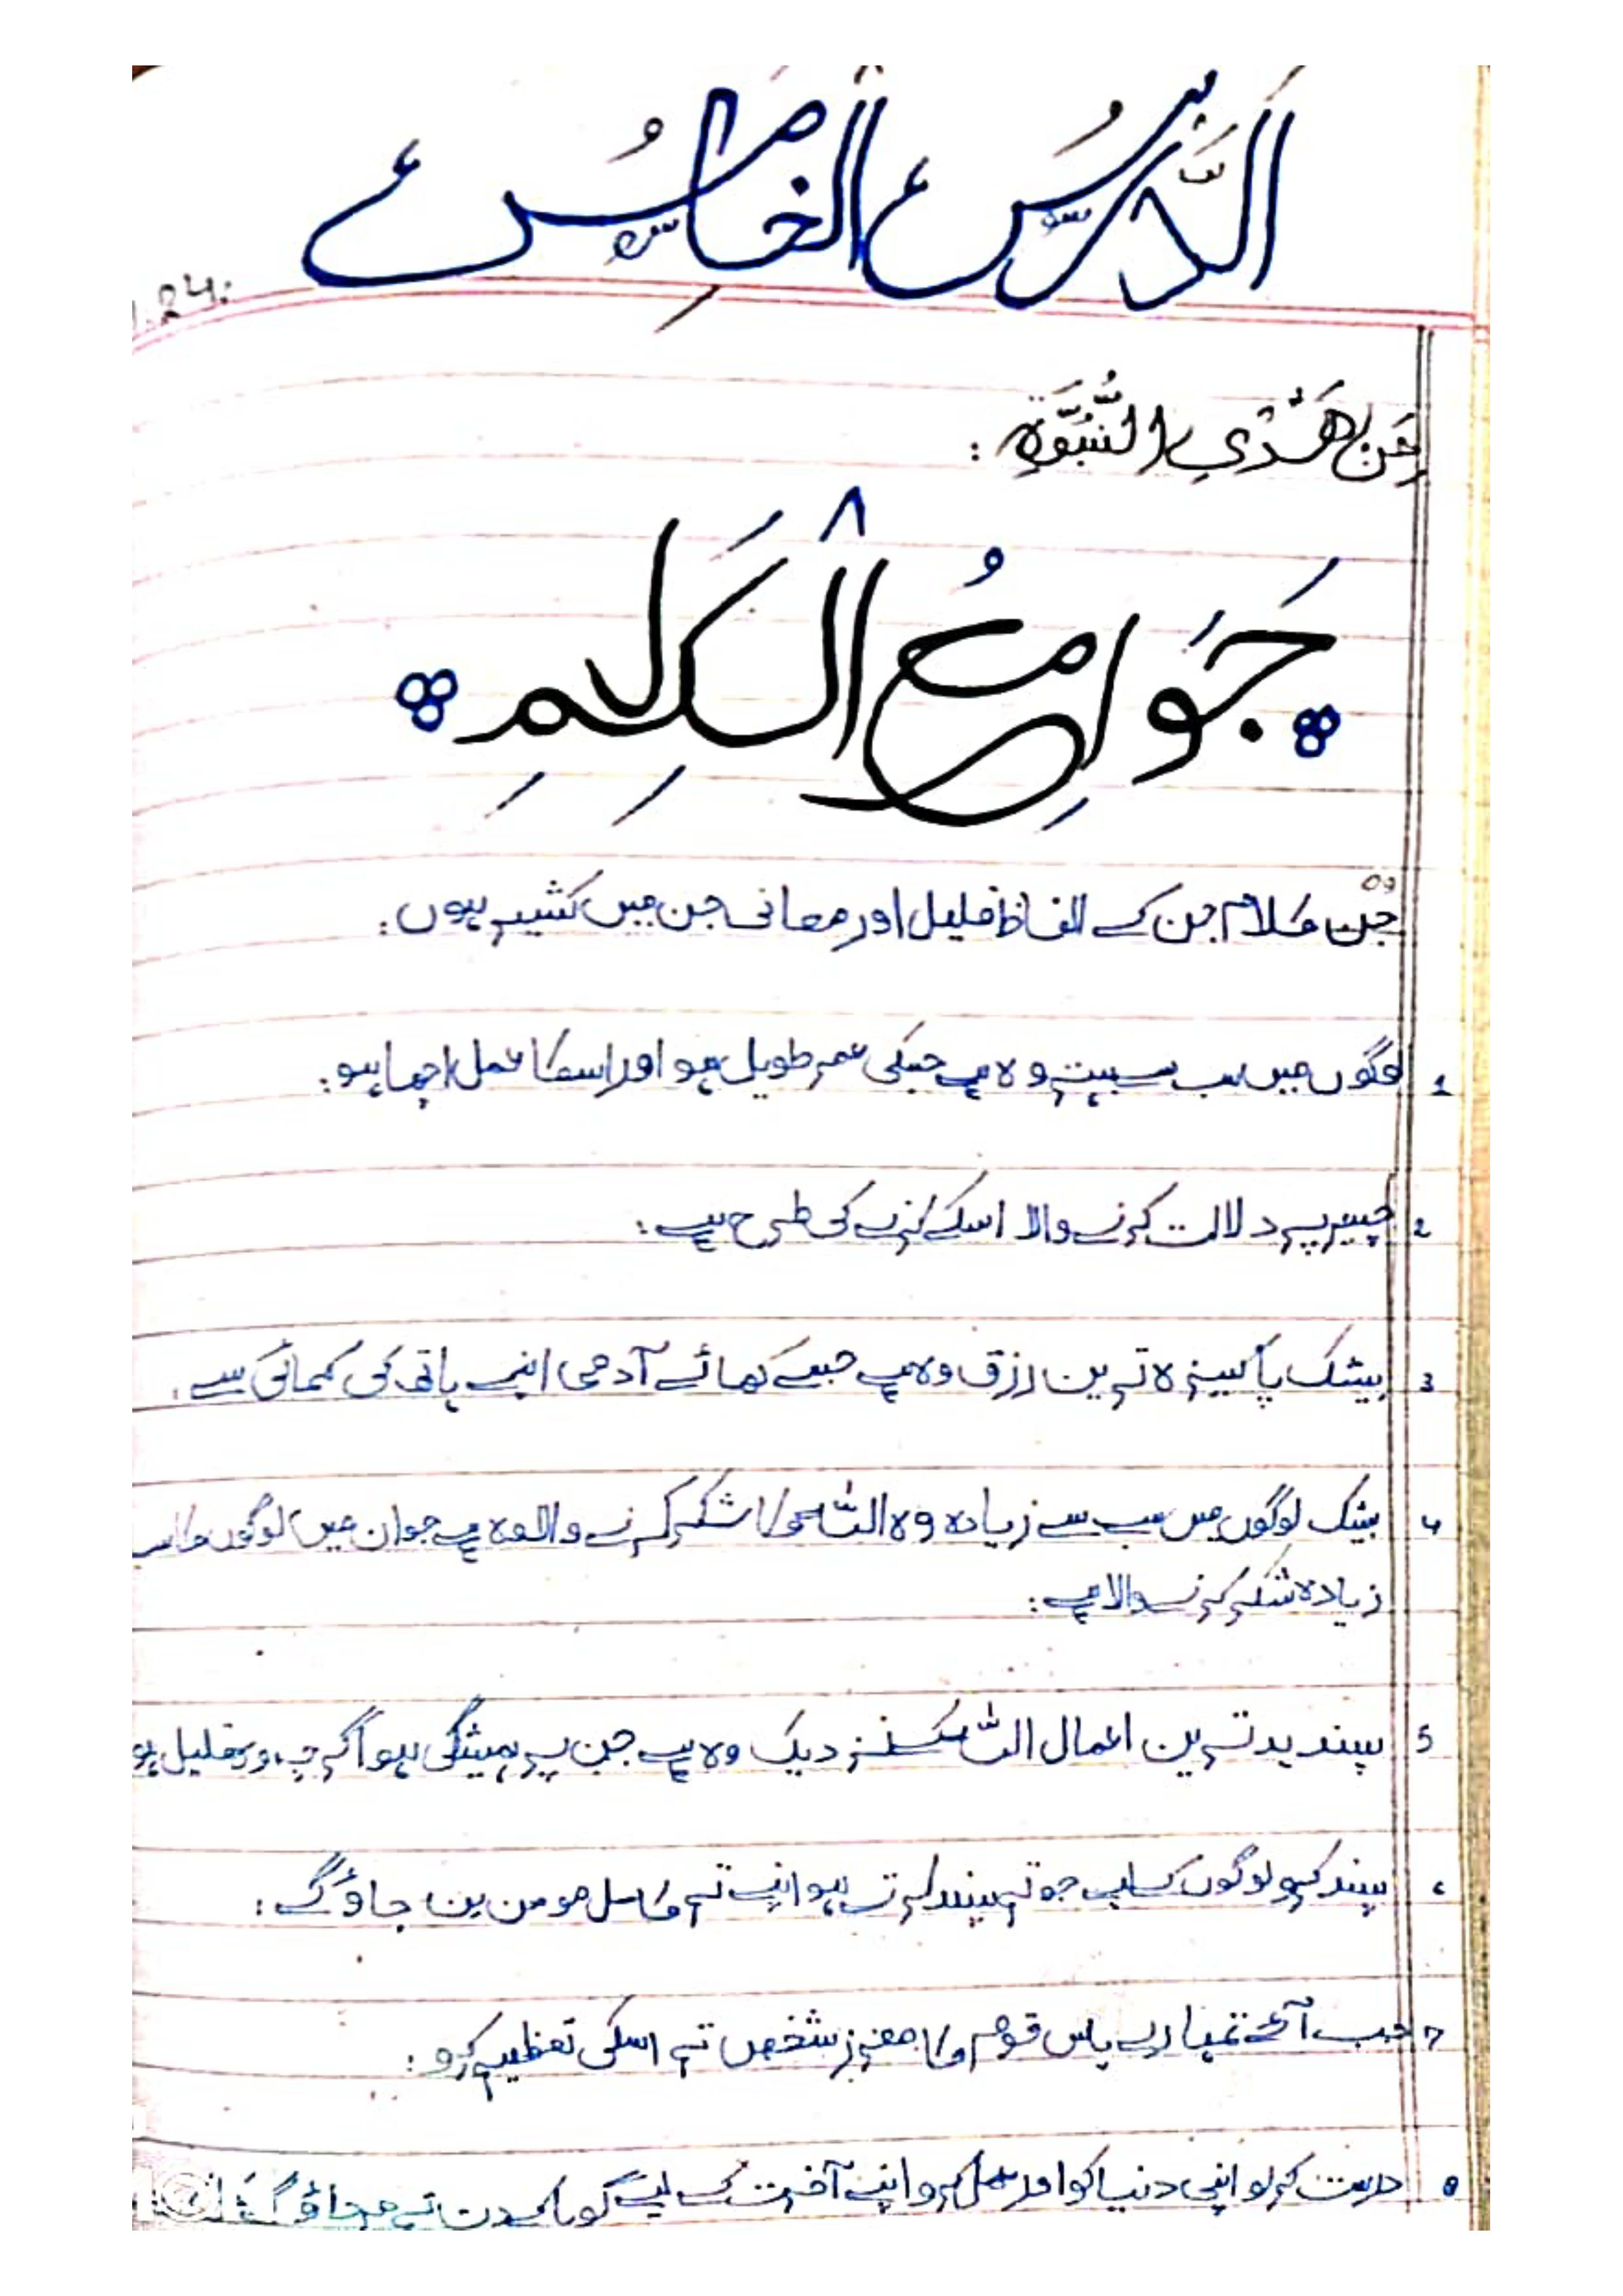 اَلدَّرْسُ الْخَامِسُ
.24:
مِنْ هَدْيِ النُّبُوَّةِ :
جَوَامِعُ الْكَلِمِ
وہ
جن کلام جن کے الفاظ قلیل اور معانی جن میں کثیر ہوں:
1 لوگوں میں سب سے بہتر وہ ہے جسکی عمر طویل ہو اور اسکا عمل اچھا ہو:
2 پر دلالت کرنے والا اسکے کرنے کی طرح ہے:
3 بیشک پاکیزہ ترین رزق وہ ہے جسے کھائے آدمی اپنے ہاتھ کی کمائی سے
4 بیشک لوگوں میں سب سے زیادہ وہ اللہ کا شکر کرنے والا وہ ہے جو ان میں لوگوں کا سب
زیادہ شکر کرنے والا ہے:
5 پسندیدترین اعمال اللہ کے نزدیک وہ ہے جن پر ہمیشگی ہو اگرچہ وہ قلیل ہو
6 پسند کرو لوگوں کے لیے جو تم پسند کرتے ہو اپنے تم کامل مومن بن جاؤگے:
7 جب آئے تمہارے پاس قوم کا معزز شخص تم اسکی تعظیم کرو:
8 درست کرلو اپنی دنیا کو اور عمل کرو اپنے آخرت کے لیے گویا کے دن تم مرجاؤگے